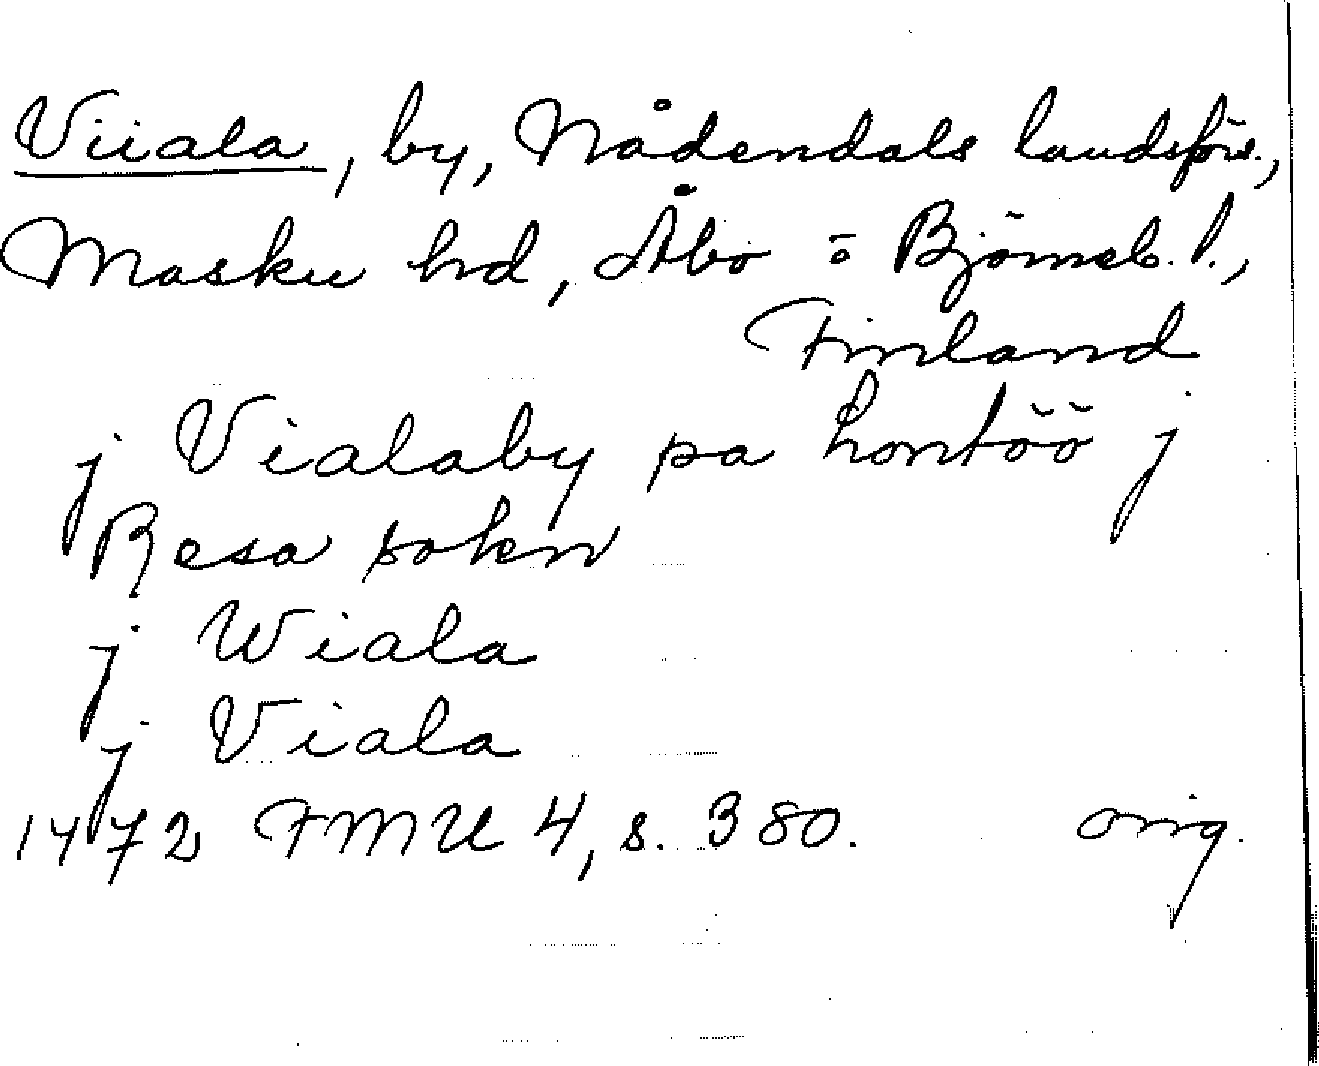 Viiala, by, Nådendals landsförs.,
Masku hd, Åbo o Björneb. l.,
Finland
j Vialaby pa hontöö j
Resa sokn
j Wiala
j Viala
1472 FMU 4, s. 380. orig.